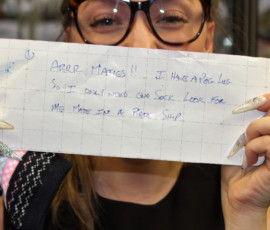 ARRR MATES!! I HAVE A PEG LEG
SO I ONLY WORE ONE SOCK. LOOK FOR
ME MATE IN A PIRATE SHIP.